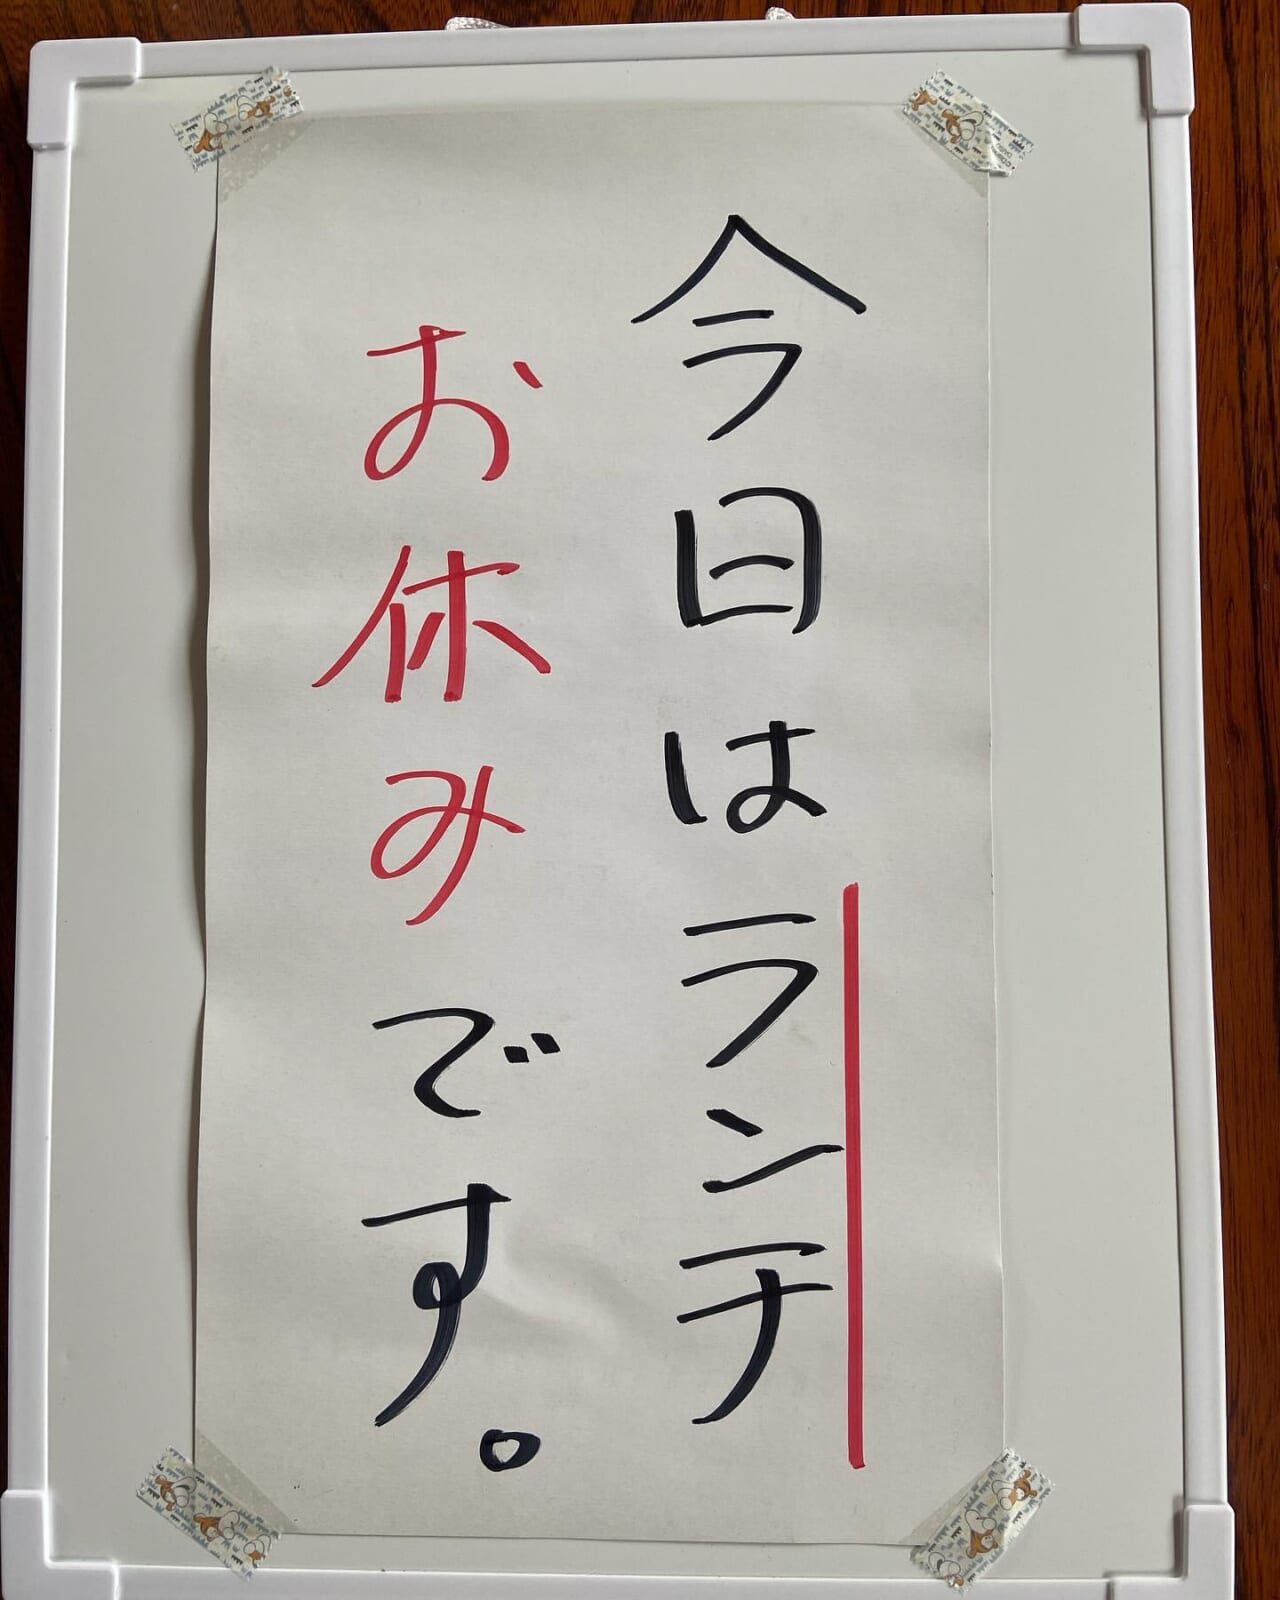 今日はランチ
お休みです。